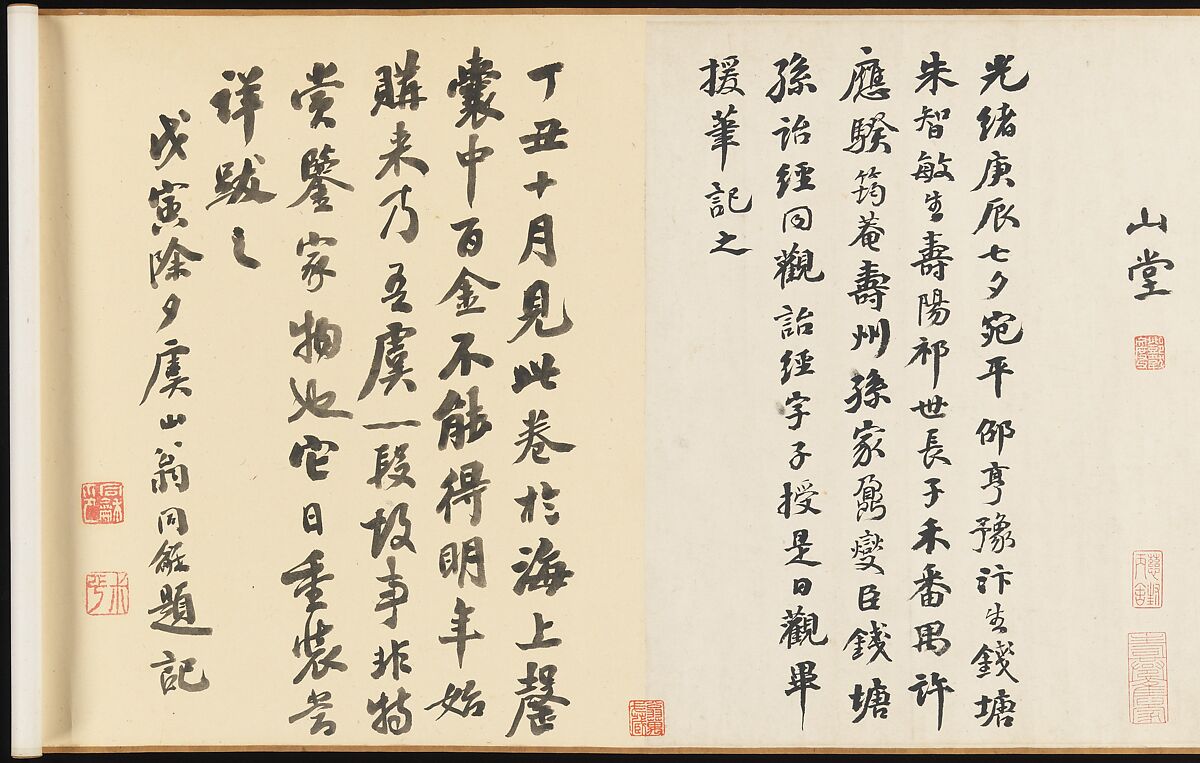 山堂
光緒庚辰七夕宛平邵亨豫汴生錢塘
朱智敏生壽陽祁世長子禾番禺許
應騤筠菴壽州孫家鼐燮臣錢塘
孫詒經同觀詒經字子授是日觀畢
援筆記之
丁丑十月見此卷於海上罄
囊中百金不能得明年始
購来乃吾虞一段故事非特
赏鑒家物也它日重装當
詳跋之
戊寅除夕虞山翁同龢題記